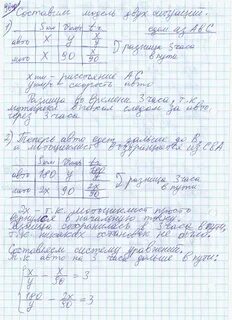 Составим модель двух ситуаций.
1) Sкм Vкм/ч t ч едем из A в C
авто x y x/y
мото x 90 x/90
} разница 3 часа
в пути
x км - расстояние AC
y км/ч скорость авто
Разница во времени 3 часа, т.к.
мотоцикл выехал следом за авто,
через 3 часа
2) Теперь авто едет дальше до B,
мотоциклист возвращается из C в A
Sкм Vкм/ч t ч
авто 180 y 180/y
мото 2x 90 2x/90
} разница 3 часа
в пути
2x - т.к. мотоциклист просто
вернулся в начальную точку.
Разница сохранилась в 3 часа в пути,
т.к. никаких остановок не было.
Составляем систему уравнений.
Т.к. авто на 3 часа дольше в пути:
{ x/y - x/90 = 3
180/y - 2x/90 = 3